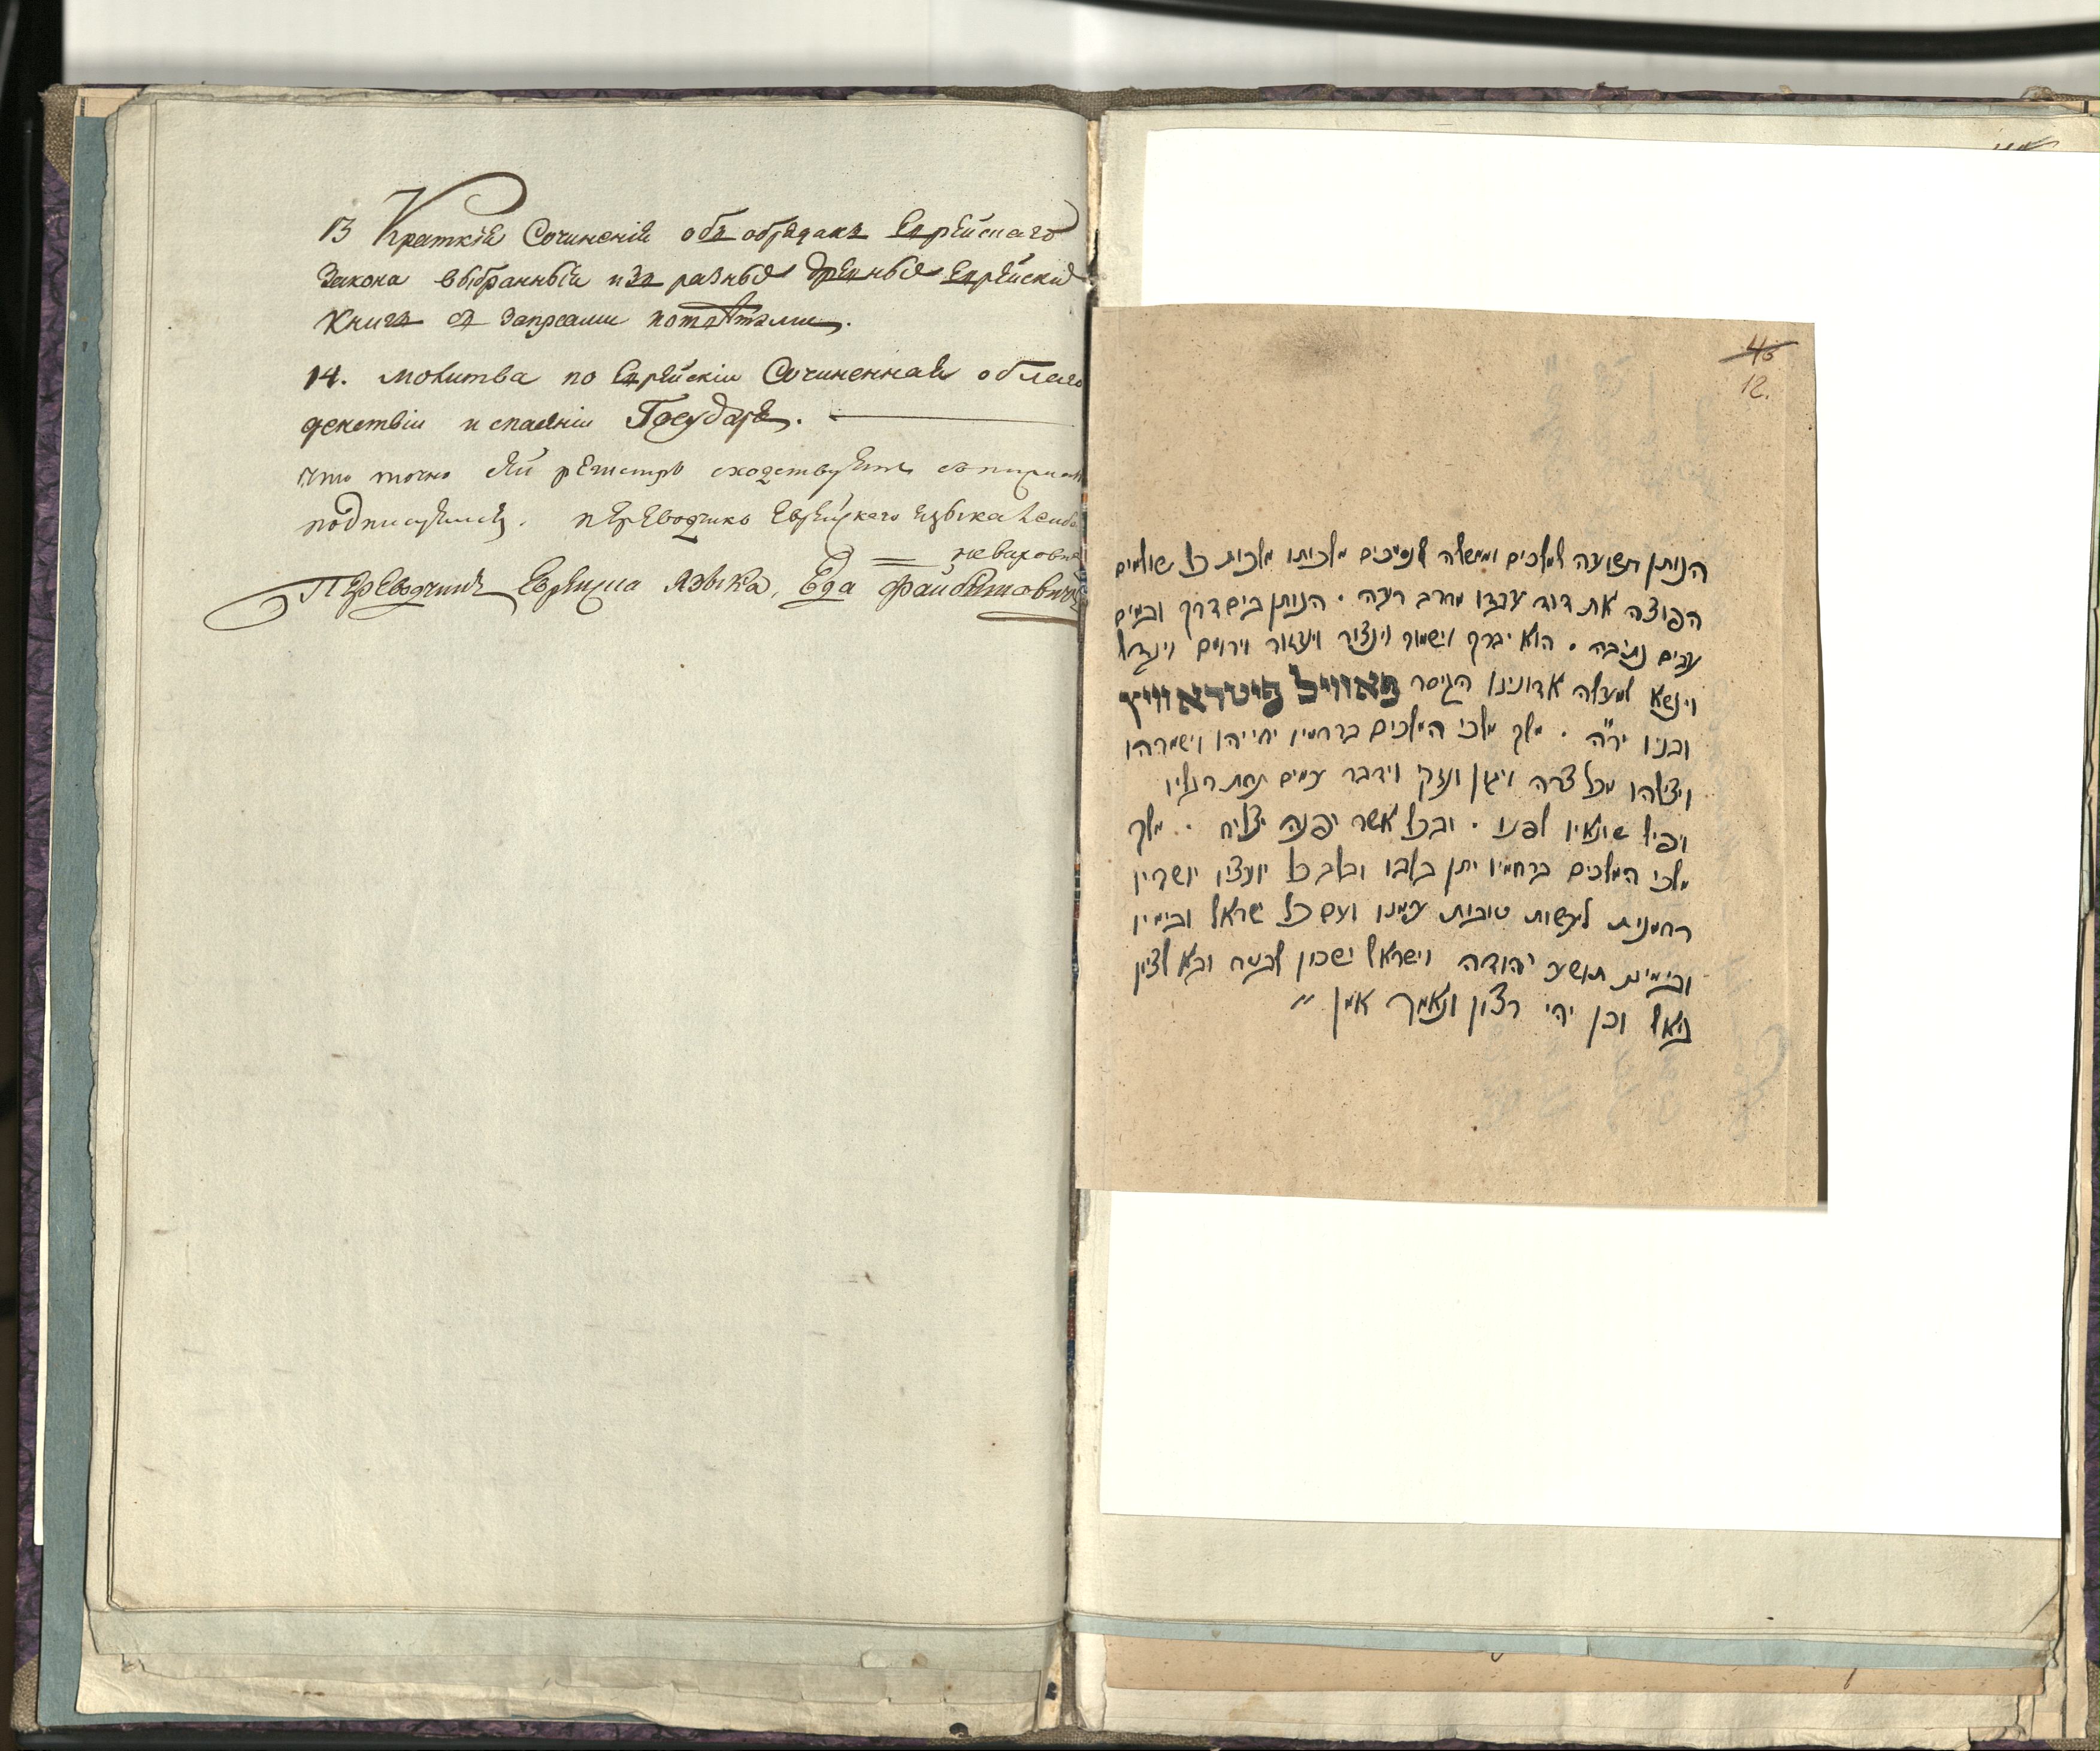 13 Краткій Сочиненій объ обрядахъ Еврейскаго
Закона выбранный изъ разныхъ древныхъ Еврейскихъ
Книгъ съ
14. молитва по Еврейскіи Сочиненная о благо
денствіи и спасеніи Государя.
что точно сей регистръ сходствуетъ
подписуемся. переводчикъ Еврейскаго языка Лейба
неваховичъ
Переводчикъ Еврейска Языка, Еда Файбишовичъ
46
12.
הנותן תשועה למלכים וממשלה לנסיכים מלכותו מלכות כל עולמים
הפוצה את דוד עבדו מחרב רעה . הנותן בים דרך ובמים
עזים נתיבה . הוא יברך וישמור וינצור ויעזור וירומם ויגדל
וינשא למעלה אדונינו הקיסר פאוויל פיטראוויץ
ובניו יר״ה . מלך מלכי המלכים ברחמיו יחייהו וישמרהו
ויצילהו מכל צרה ויגון ונזק וידבר עמים תחת רגליו
ויפיל שונאיו לפניו . ובכל אשר יפנה יצליח . מלך
מלכי המלכים ברחמיו יתן בלבו ובלב כל יועציו ושריו
רחמנות לעשות טובות עמנו ועם כל ישראל ובימיו
ובימינו תושע יהודה וישראל ישכון לבטח ובא לציון
גואל וכן יהי רצון ונאמר אמן